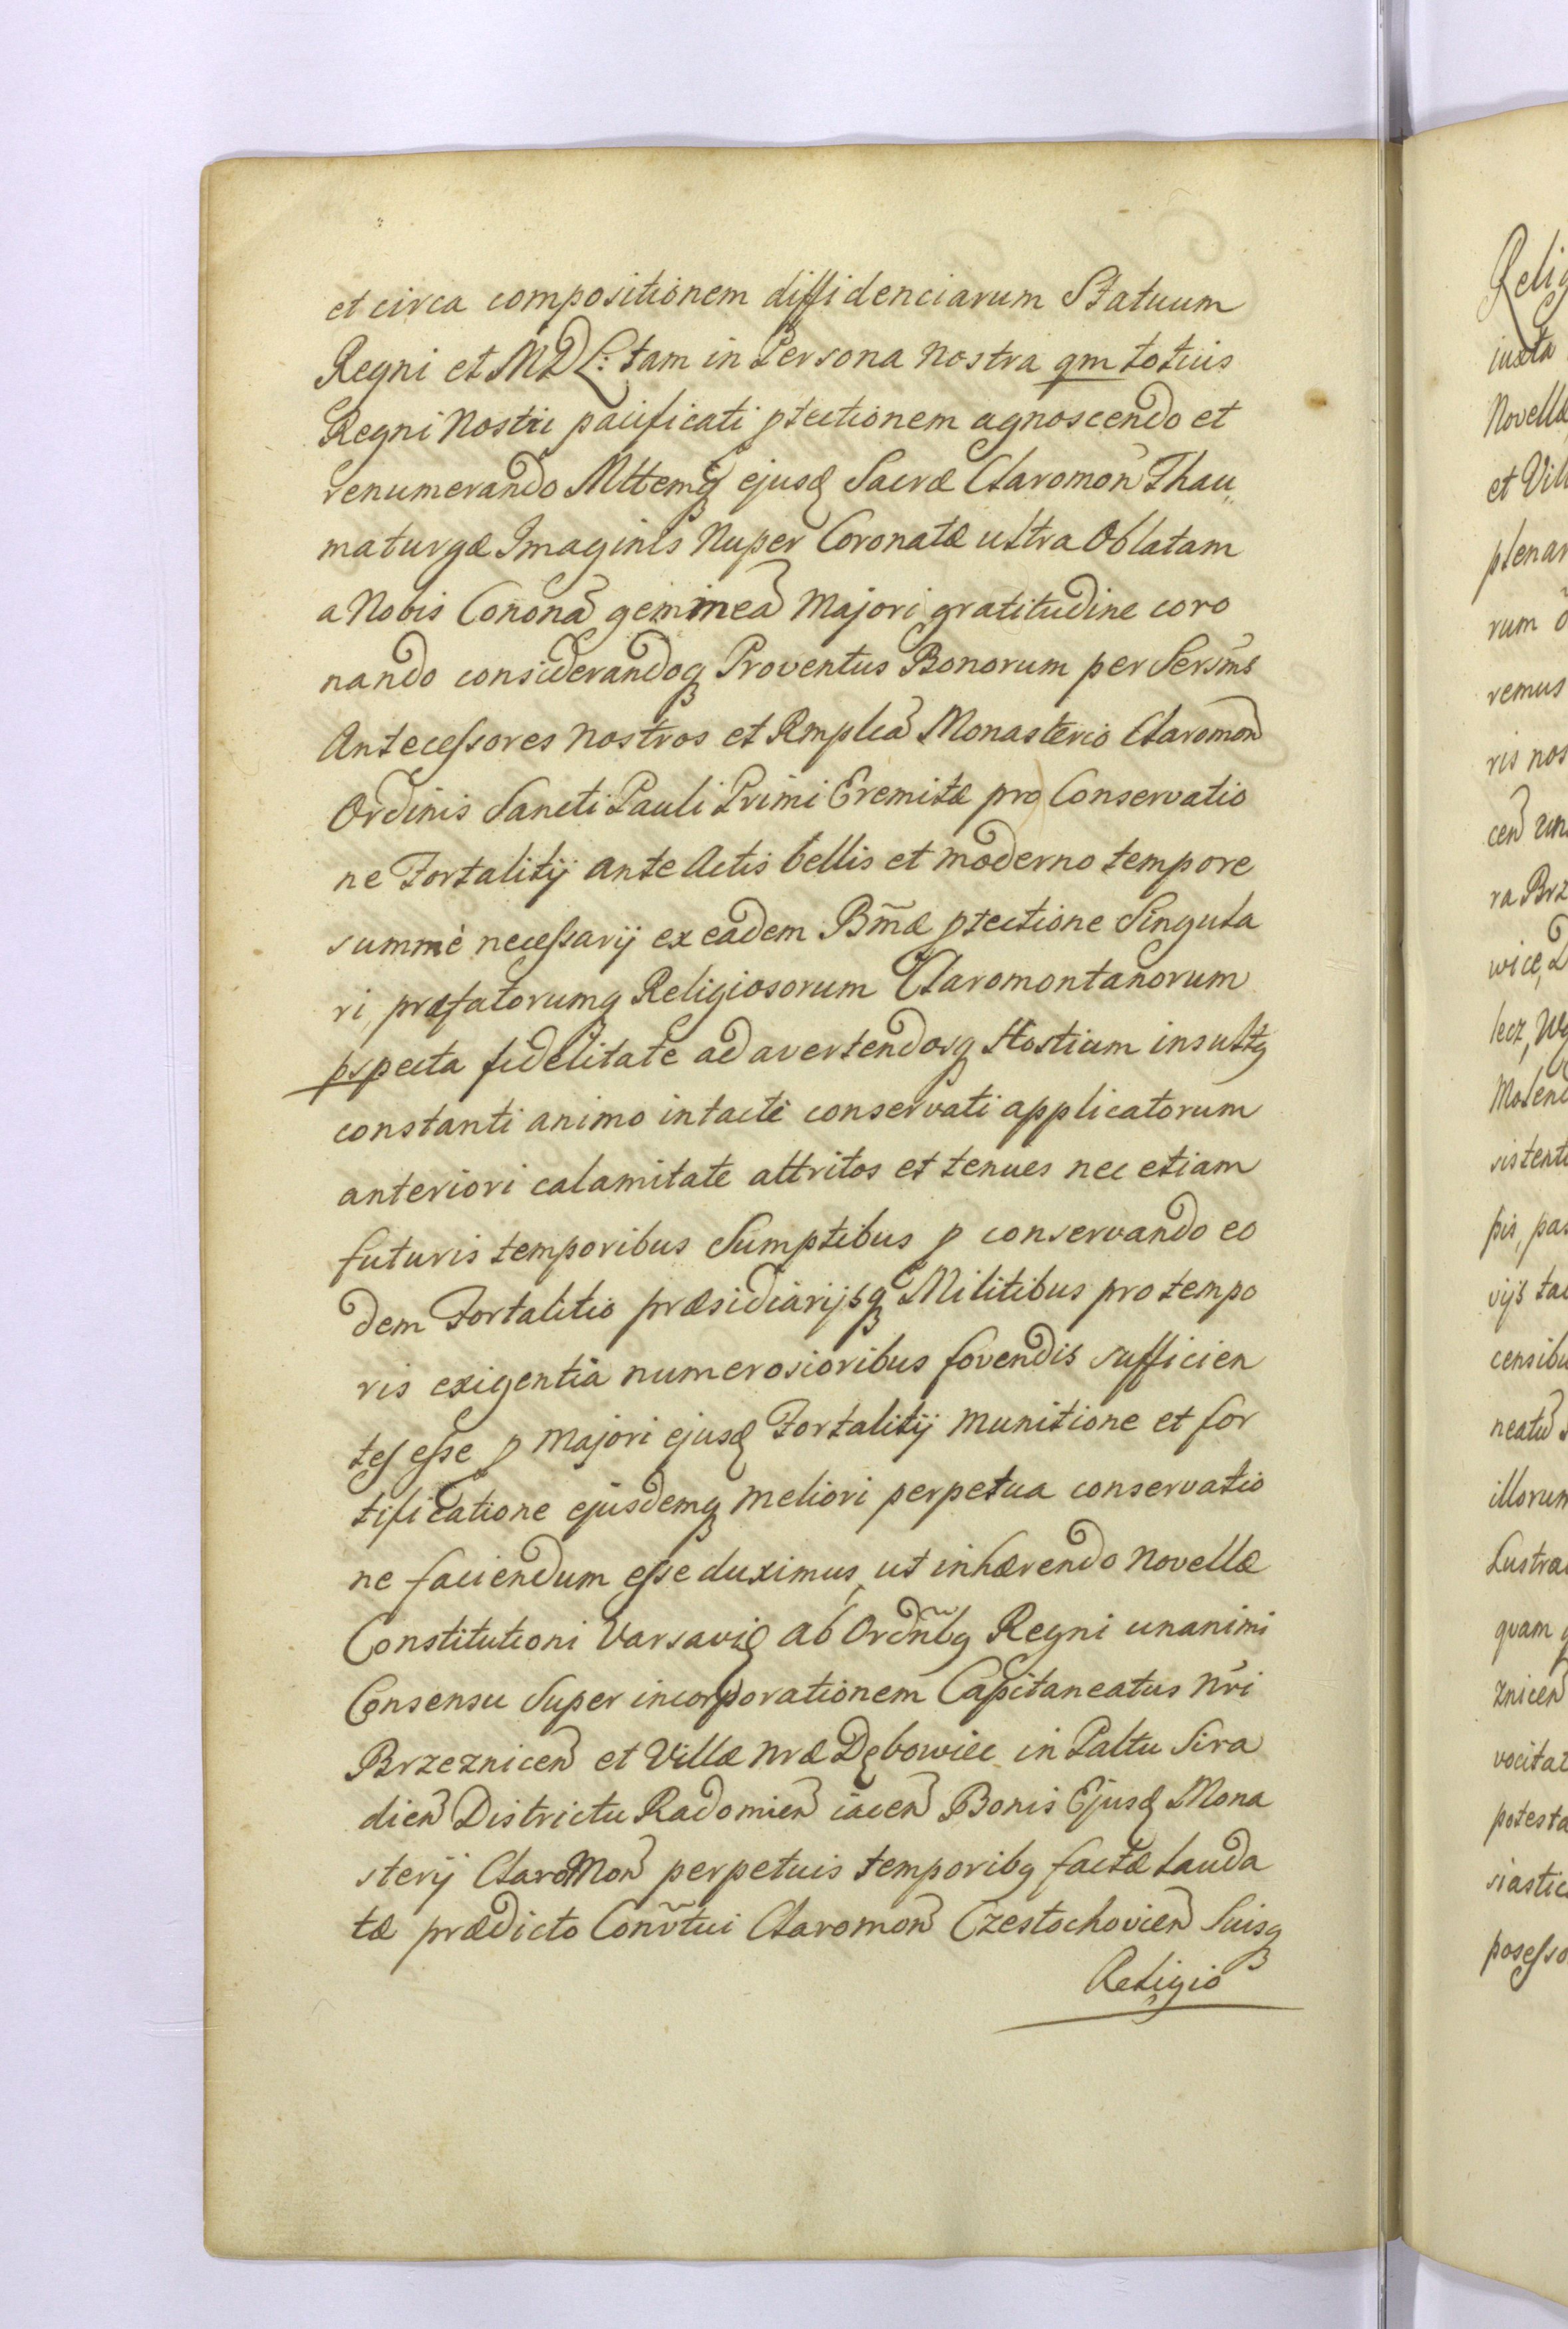 et circa compositionem diffidenciarum Statuum
Regni et MDL: tam in Persona Nostra qm totius
Regni Nostri pacificati ptectionem agnoscendo et
renumerando Mttemq ejusd Sacræ Claromon Thau„
maturgæ Imaginis Nuper Coronatæ ultra Oblatam
a Nobis Cononã gemmeã Majori gratitudine coro
nando considerandoq Proventus Bonorum per Sersm̃s
Antecessores Nostros et Rmplcã Monasterio Claromon
Ordinis Sancti Pauli Primi Eremitæ pro Conservatio
ne Fortalitij ante Actis bellis et moderno tempore
summè necessarij ex eadem Bm̃æ ptectione Singula
ri præfatorumq Religiosorum Claromontanorum
pspecta fidelitate ad avertendosq Hostium insultq
constanti animo intactè conservati applicatorum
anteriori calamitate attritos et tenues nec etiam
futuris temporibus Sumptibus p conservando eo
dem Fortalitio præsidiarijsq Militibus pro tempo
ris exigentia numerosioribus fovendis sufficien
tes esse p Majori ejusd Fortalitij Munitione et for
tificatione ejusdemq meliori perpetua conservatio
ne faciendum esse duximus, ut inhærendo Novellæ
Constitutioni Varsaviæ ab Ordñbq Regni unanimi
Consensu Super incorporationem Capitaneatus Nri
Brzeznicen et Villæ Nræ Dębowiec in Paltu Sira
dien Districtu Radomien iacen Bonis Ejusd Mona
sterij ClaroMon perpetuis temporibq factæ lauda
tæ prædicto Conṽtui Claromon Czestochovien Suisq
Religio

Relig
iuxta
Novellæ
et Vill
plenar
rum
remus
ris nos
cen
ra Brz
wice,
lecz,
Molend
sistent
pis, pas
vijs ta
censibu
neatu
illorum
Lustra
quam
znicen
vocitat
potesta
siastic
posesso